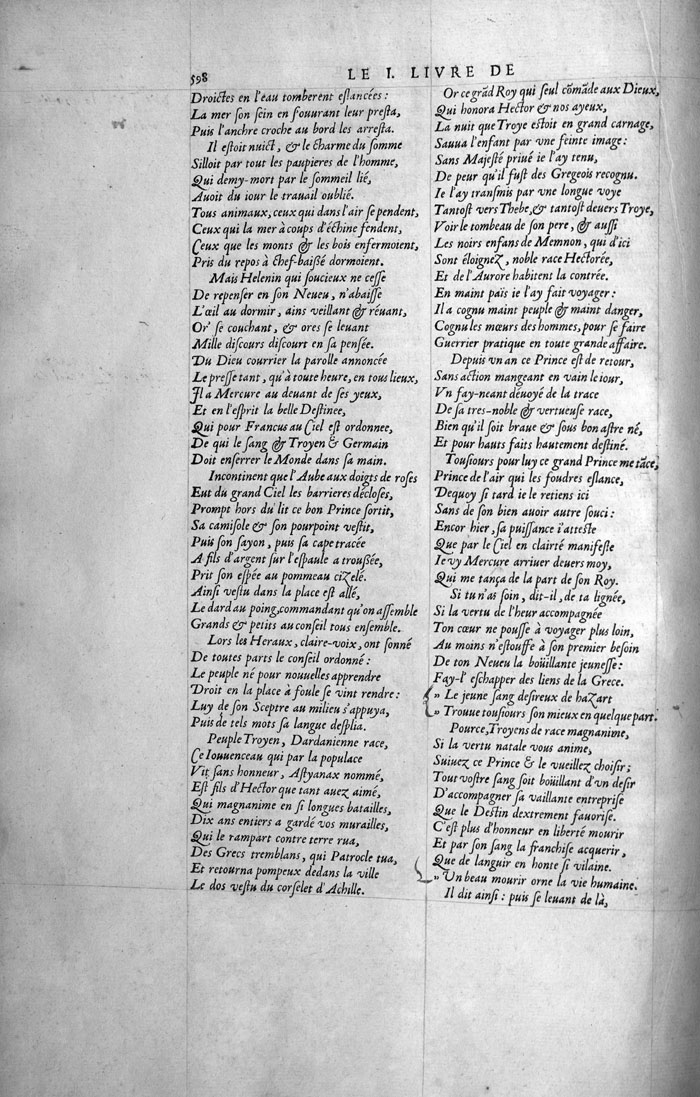 598
LE I. LIVRE DE
Droictes en l'eau tomberent eslancées:
La mer son sein en fouurant leur presta,
Puis l'anchre croche au bord les arresta.
Il estoit nuict, & le charme du somme
Silloit par tout les paupieres de l'homme,
Qui demy-mort par le sommeil lié,
Auoit du iour le trauail oublié.
Tous animaux, ceux qui dans l'air se pendent,
Ceux qui la mer à coups d'échine fendent,
Ceux que les monts & les bois enfermoient,
Pris du repos à chef-baissé dormoient.
Mais Helenin qui soucieux ne cesse
De repenser en son Neueu, n'abaisse
L'œil au dormir, ains veillant & réuant,
Or' se couchant, & ores se leuant
Mille discours discourt en sa pensée.
Du Dieu courrier la parolle annoncée
Le presse tant, qu'à toute heure, en tous lieux,
Il a Mercure au deuant de ses yeux,
Et en l'esprit la belle Destinee,
Qui pour Francus au Ciel est ordonnee,
De qui le sang & Troyen & Germain
Doit enserrer le Monde dans sa main.
Incontinent que l'Aube aux doigts de roses
Eut du grand Ciel les barrieres décloses,
Prompt hors du lit ce bon Prince sortit,
Sa camisole & son pourpoint vestit,
Puis son sayon, puis sa cape tracée
A fils d'argent sur l'espaule a troussée,
Prit son espée au pommeau cizelé.
Ainsi vestu dans la place est allé,
Le dard au poing, commandant qu'on assemble
Grands & petits au conseil tous ensemble.
Lors les Heraux, claire-voix, ont sonné
De toutes parts le conseil ordonné:
Le peuple né pour nouuelles apprendre
Droit en la place à foule se vint rendre:
Luy de son Sceptre au milieu s'appuya,
Puis de tels mots sa langue desplia.
Peuple Troyen, Dardanienne race,
Ce Iouuenceau qui par la populace
Vit sans honneur, Astyanax nommé,
Est fils d'Hector que tant auez aimé,
Qui magnanime en si longues batailles,
Dix ans entiers a gardé vos murailles,
Qui le rampart contre terre rua,
Des Grecs tremblans, qui Patrocle tua,
Et retourna pompeux dedans la ville
Le dos vestu du corselet d'Achille.
Or ce grãd Roy qui seul cõmãde aux Dieux,
Qui honora Hector & nos ayeux,
La nuit que Troye estoit en grand carnage,
Sauua l'enfant par vne feinte image:
Sans Majesté priué ie l'ay tenu,
De peur qu'il fust des Gregeois recognu.
Ie l'ay transmis par vne longue voye
Tantost vers Thebe, & tantost deuers Troye,
Voir le tombeau de son pere, & aussi
Les noirs enfans de Memnon, qui d'ici
Sont éloignez, noble race Hectorée,
Et de l'Aurore habitent la contrée.
En maint païs ie l'ay fait voyager:
Il a cognu maint peuple & maint danger,
Cognu les mœurs des hommes, pour se faire
Guerrier pratiq en toute grande affaire.
Depuis vn an ce Prince est de retour,
Sans action mangeant en vain le iour,
Vn fay-neant déuoyé de la trace
De sa tres-noble & vertueuse race,
Bien qu'il soit braue & sous bon astre né,
Et pour hauts faits hautement destiné.
Tousiours pour luy ce grand Prince me tãce,
Prince de l'air qui les foudres eslance,
Dequoy si tard ie le retiens ici
Sans de son bien auoir autre souci:
Encor hier, sa puissance i'atteste
Que par le Ciel en clairté manifeste
Ie vy Mercure arriuer deuers moy,
Qui me tança de la part de son Roy.
Si tu n'as soin, dit-il, de ta lignée,
Si la vertu de l'heur accompagnée
Ton cœur ne pousse à voyager plus loin,
Au moins n'estouffe à son premier besoin
De ton Neueu la boüillante jeunesse:
Fay-l' eschapper des liens de la Grece.
» Le jeune sang desireux de hazart
» Trouue tousiours son mieux en quelque part.
Pource, Troyens de race magnanime,
Si la vertu natale vous anime,
Suiuez ce Prince & le vueillez choisir;
Tout vostre sang soit boüillant d'vn desir
D'accompagner sa vaillante entreprise
Que le Destin dextrement fauorise.
C'est plus d'honneur en liberté mourir
Et par son sang la franchise acquerir,
Que de languir en honte si vilaine.
» Vn beau mourir orne la vie humaine.
Il dit ainsi: puis se leuant de là,